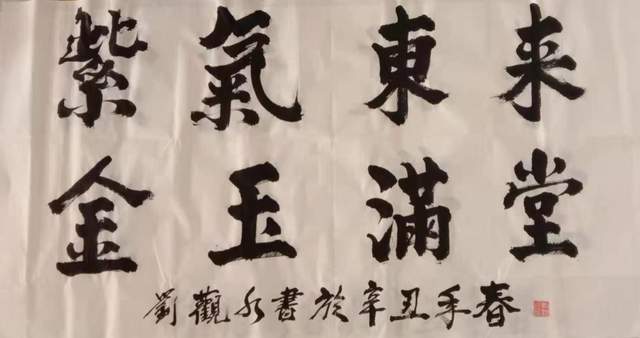 紫氣東来
金玉滿堂
劉觀水書於辛丑年春